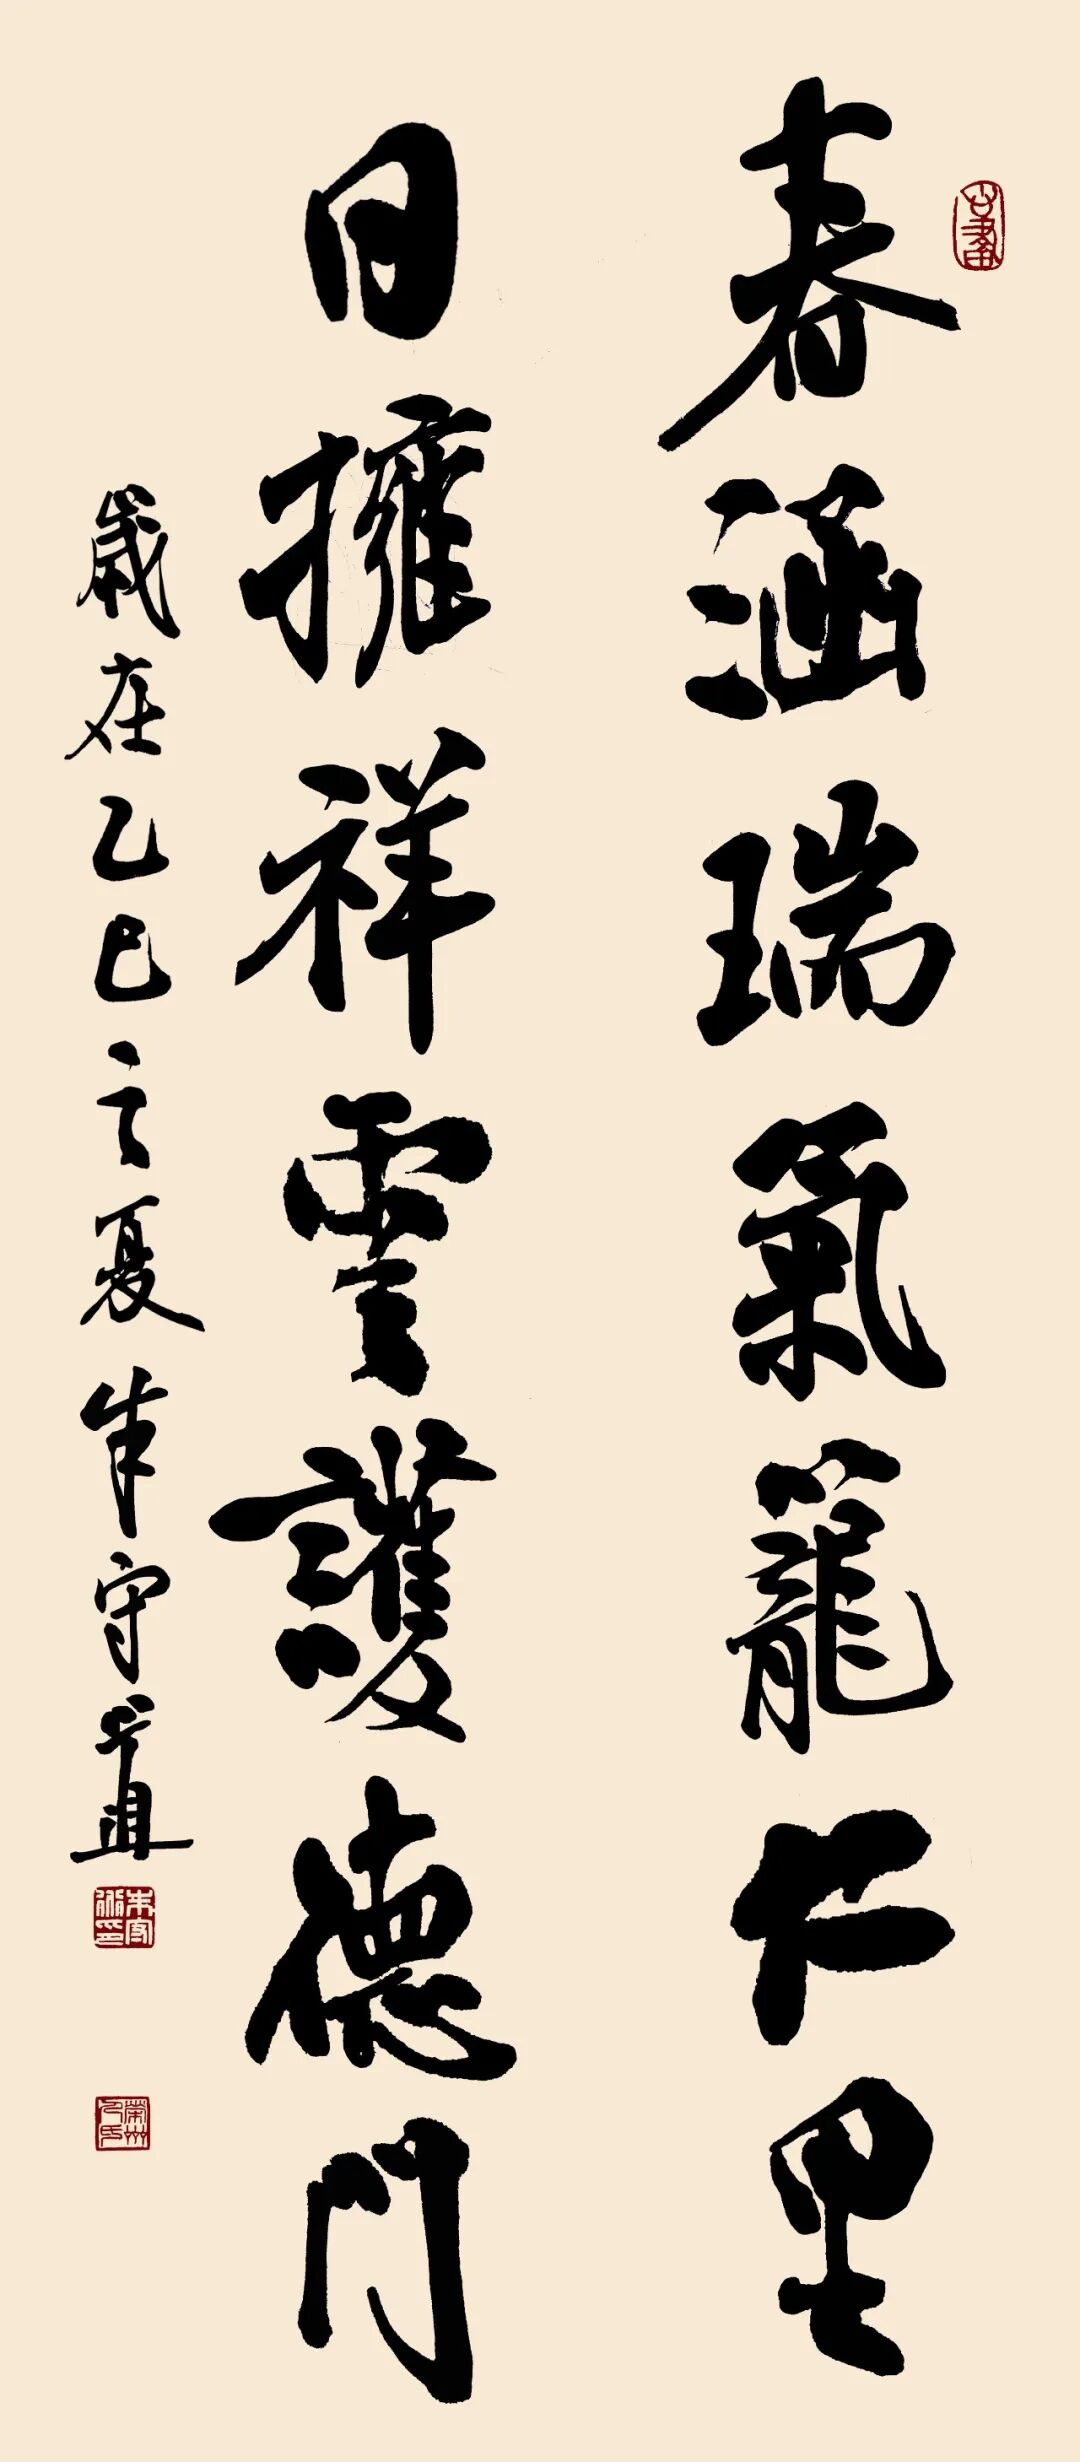 春涵瑞氣籠仁里
日擁祥雲護德門
歲在乙巳之夏朱守道